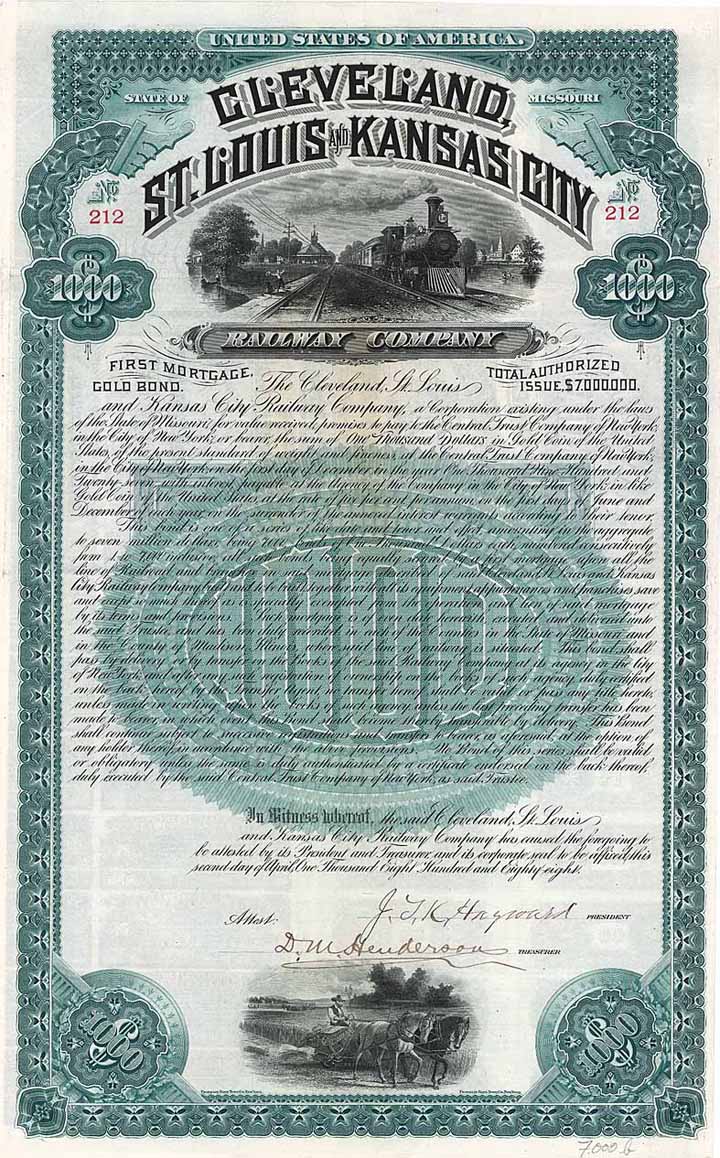 UNITED STATES OF AMERICA.
STATE OF MISSOURI
CLEVELAND,
ST. LOUIS AND KANSAS CITY
No. 212
No. 212
$1000
$1000
RAILWAY COMPANY
FIRST MORTGAGE,
GOLD BOND.
TOTAL AUTHORIZED
ISSUE, $7,000,000.
The Cleveland, St. Louis
and Kansas City Railway Company, a Corporation existing under the laws
of the State of Missouri, for value received, promises to pay to the Central Trust Company of New York,
in the City of New York, or bearer, the sum of One Thousand Dollars in Gold Coin of the United
States, of the present standard of weight and fineness, at the Central Trust Company of New York,
in the City of New York, on the first day of December in the year One Thousand Nine Hundred and
Twenty, with interest payable at the of the Company in the City of New York, in like
Gold Coin of the United States, at the rate of per cent per annum, on the first days of June and
December of each year, on the surrender of the annexed interest according to their tenor.
This bond is one of a series of like date and tenor and effect, amounting in the aggregate
to seven million dollars, being seven thousand bonds each, numbered consecutively
from 1 to 7000 inclusive, all of which bonds are equally secured by a first mortgage upon all the
line of Railroad and said Cleveland, St. Louis and Kansas
City Railway Company together with its equipment, appurtenances and franchises, save
and except so much thereof as is especially exempted from the operation and of said mortgage
by its terms and provisions. Which mortgage is of even date herewith, executed and delivered to
the said Trustee, and has been duly recorded in each of the Counties in the State of Missouri, and
in the County of Madison, Illinois, said line of railway is situated. This bond shall
pass by delivery, or by transfer on the books of the said Railway Company at its agency in the City
of New York, and after a registration of ownership on the books of the agency, duly certified
on the back hereof, no transfer except on the books of the agency shall be valid or pass any title hereto,
unless made in writing on the books of the agency, unless the last preceding transfer has been
made to bearer, in which event this bond shall become thereby transferable by delivery. This bond
shall continue subject to successive registrations and transfers to bearer, as aforesaid, at the option of
any holder hereof, in accordance with the above provisions. No Bond of this series shall be valid
or obligatory unless the same is duly authenticated by a certificate endorsed on the back thereof,
duly executed by the said Central Trust Company of New York, as said Trustee.
In Witness whereof, the said Cleveland, St. Louis
and Kansas City Railway Company has caused the foregoing to
be attested by its President and Treasurer and its corporate seal to be affixed, this
second day of April, One Thousand Eight Hundred and Eighty eight.
Attest: J. T. K. Hayward PRESIDENT
D. M. Henderson TREASURER
$1000
$1000
7.000 b